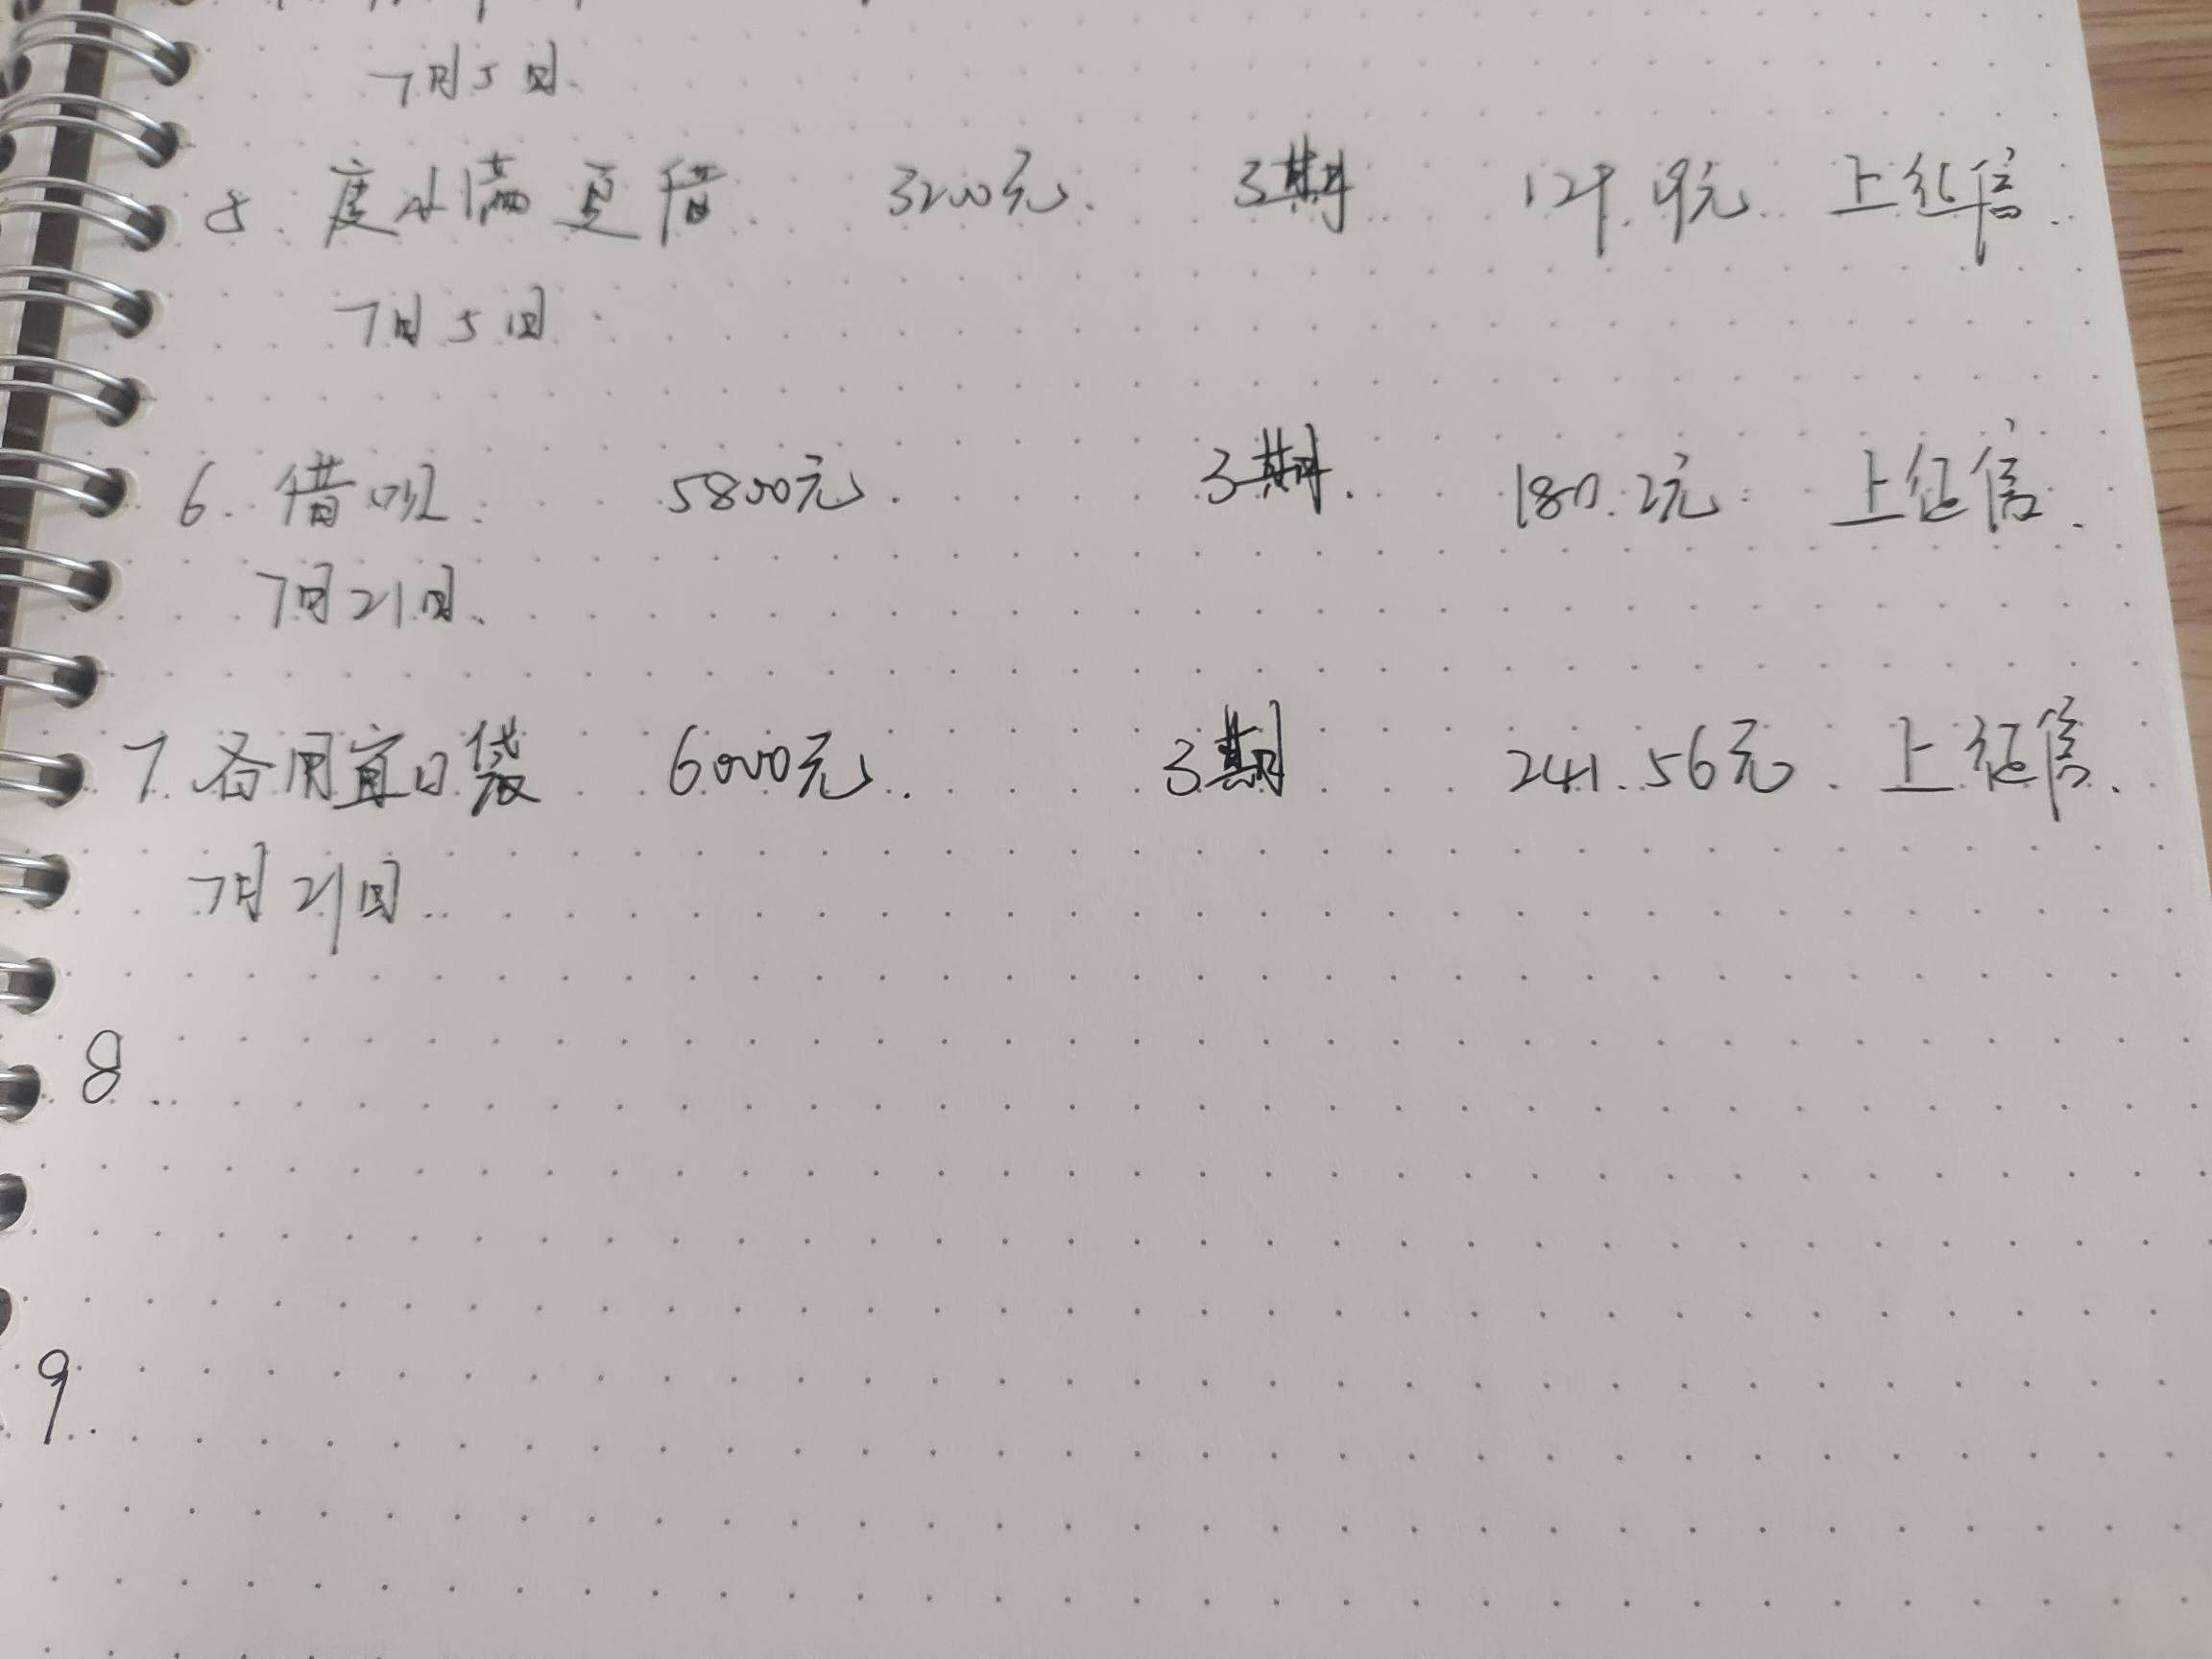 7月5日.
5. 度小满更借. 3200元. 3期 129.9元 上征信.
7月5日.
6. 借呗. 5800元. 3期. 180.2元 上征信.
7月21日.
7. 备用宜口袋 6000元. 3期 241.56元. 上征信.
7月21日.
8.
9.